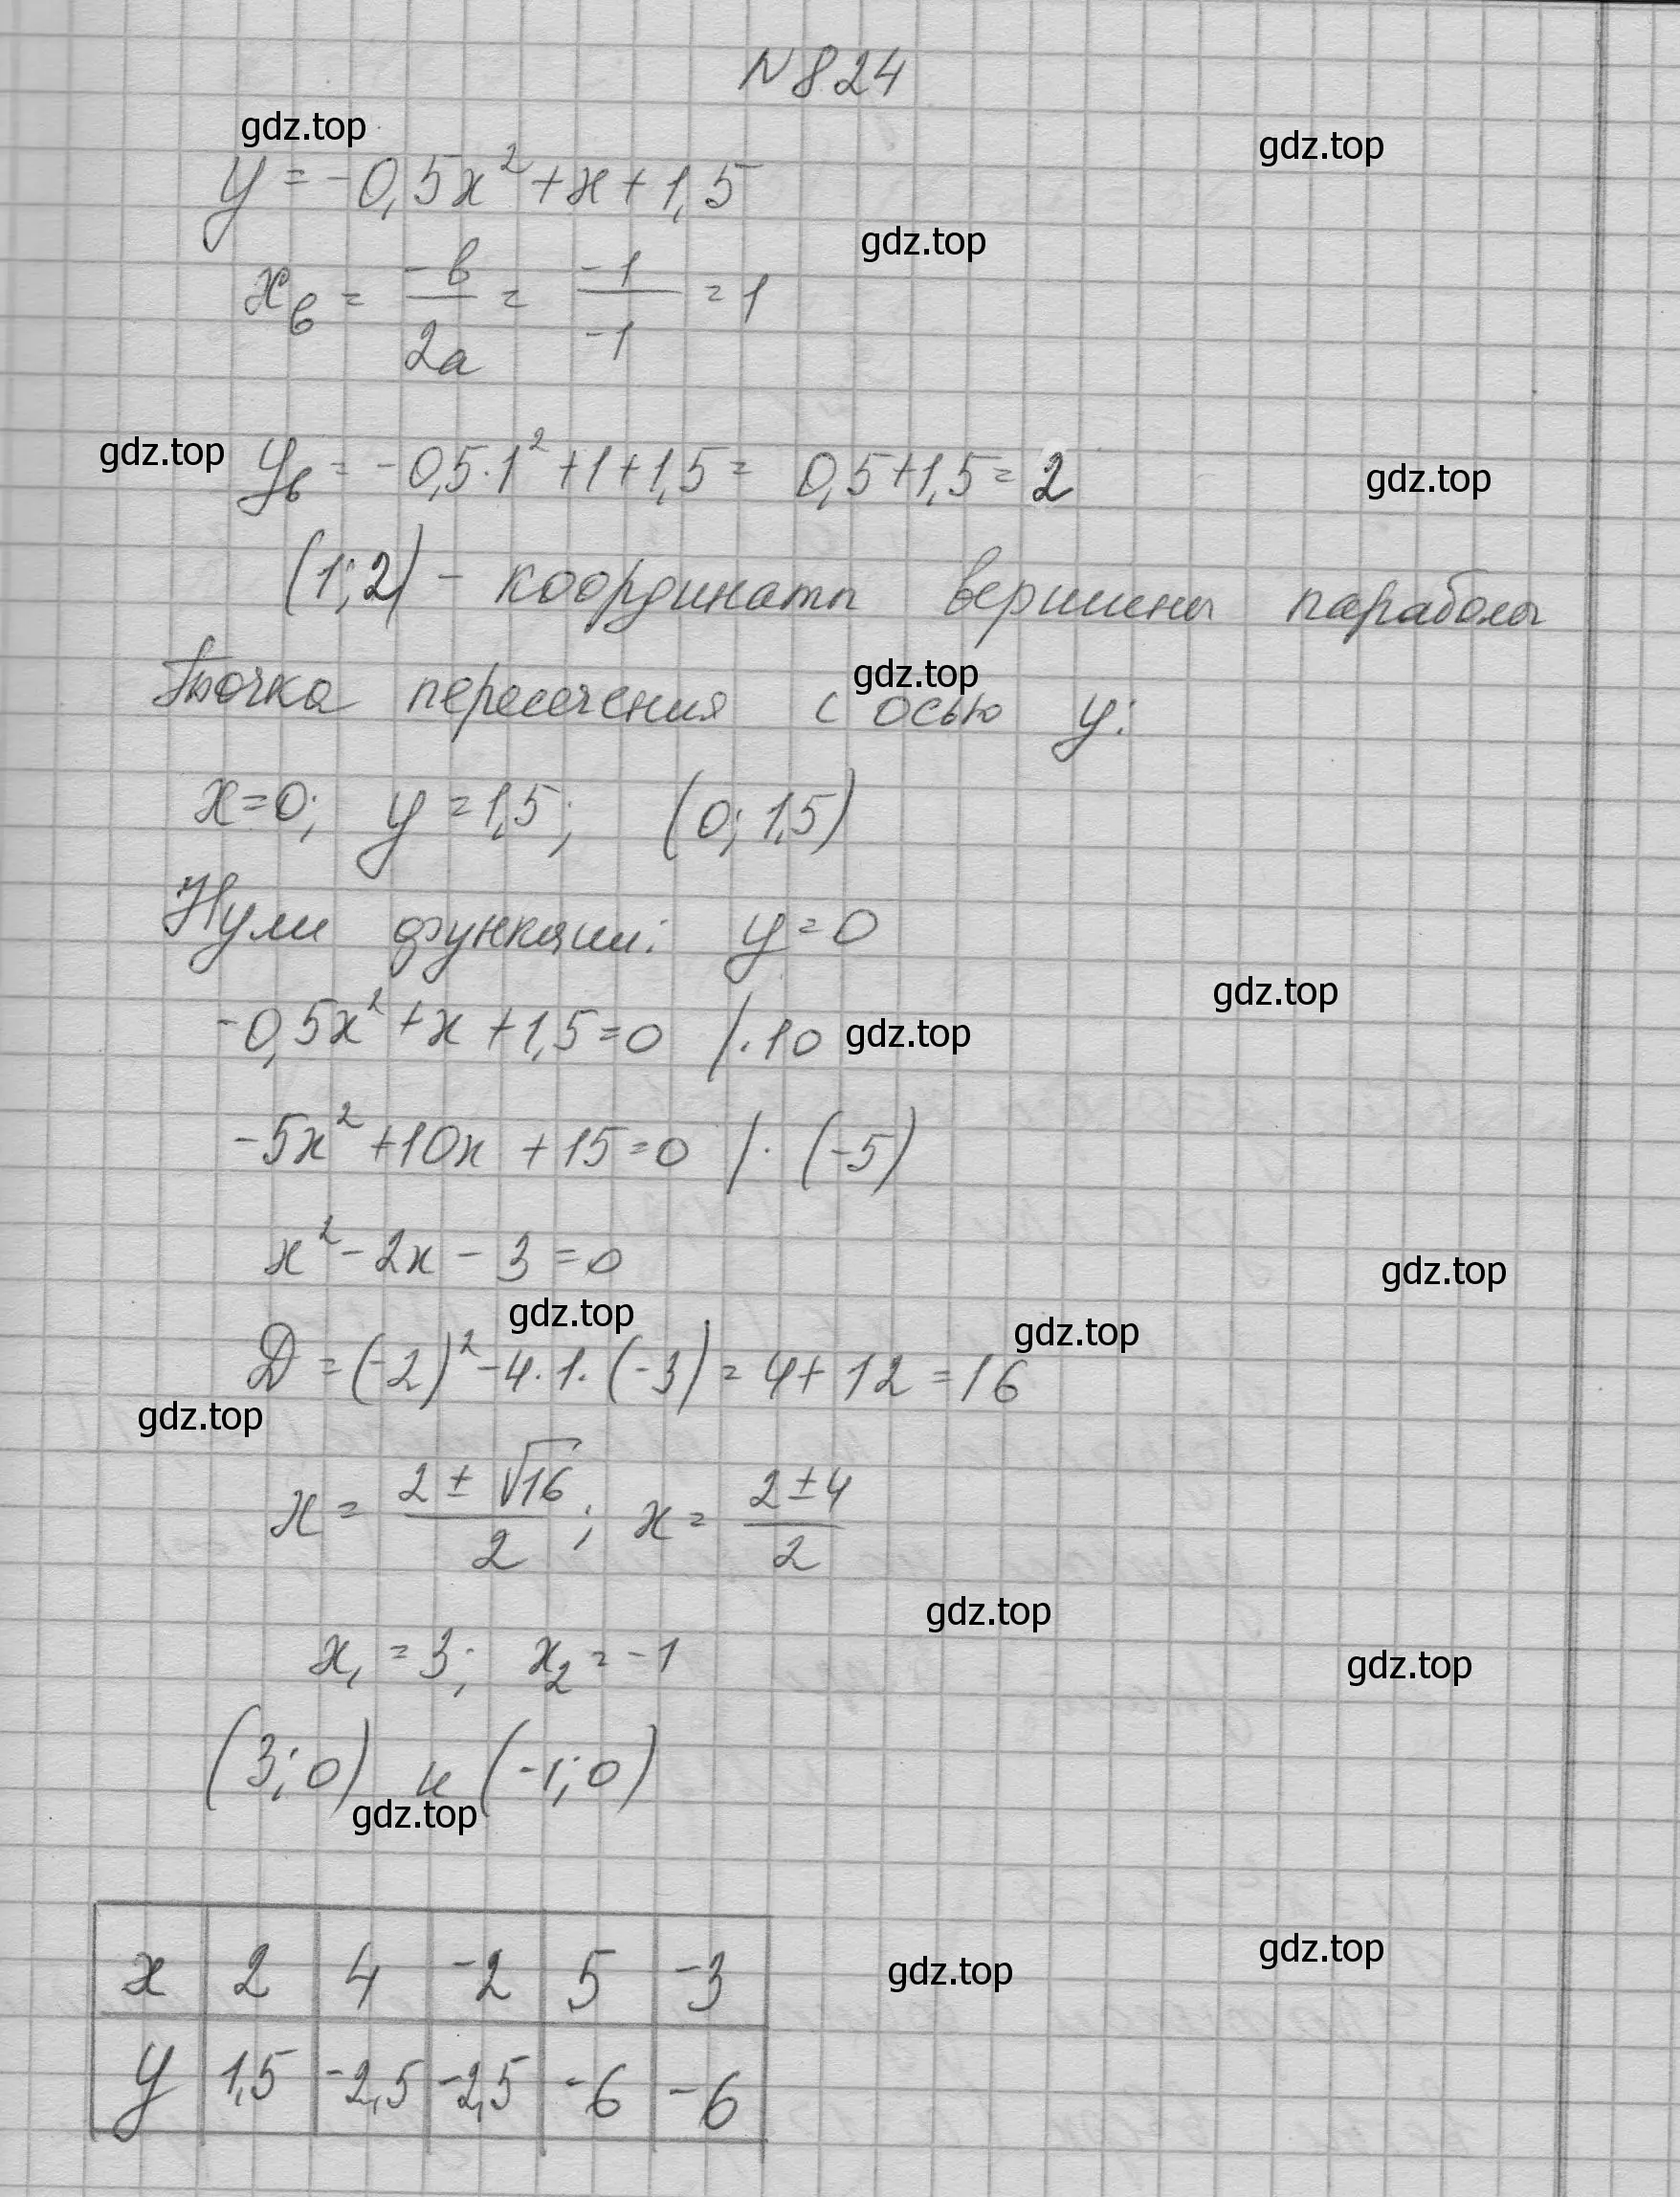 N 824
gdz.top
gdz.top
y = -0,5x² + x + 1,5
gdz.top
xв = -в/2a = -1/-1 = 1
gdz.top
yв = -0,5·1² + 1 + 1,5 = 0,5 + 1,5 = 2
gdz.top
(1; 2) - координаты вершины параболы
gdz.top
Точка пересечения с осью y:
x=0; y = 1,5; (0; 1,5)
Нули функции: y = 0
gdz.top
-0,5x² + x + 1,5 = 0 /·10
gdz.top
-5x² + 10x + 15 = 0 /: (-5)
x² - 2x - 3 = 0
gdz.top
gdz.top
gdz.top
D = (-2)² - 4·1·(-3) = 4 + 12 = 16
gdz.top
x = 2 ± √16/2; x = 2 ± 4/2
gdz.top
x₁ = 3; x₂ = -1
gdz.top
(3; 0) и (-1; 0)
gdz.top
gdz.top
gdz.top
x 2 4 -2 5 -3
y 1,5 -2,5 -2,5 -6 -6